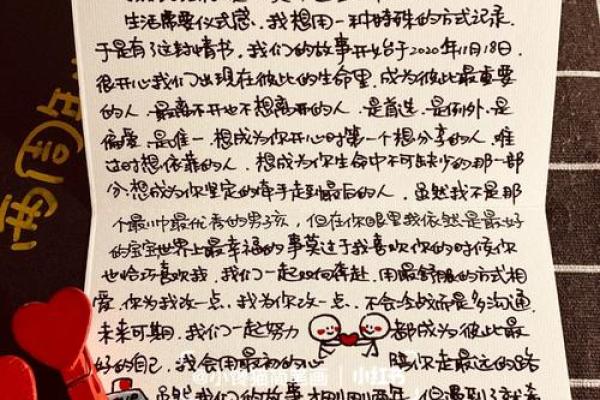 生活需要仪式感，我想用一种特殊的方式记录，
于是有了这封情书，我们的故事开始于2020年11月18日，
很开心我们出现在彼此的生命里，成为彼此最重要
的人，最离不开也不想离开的人，是首选，是例外，是
偏爱，是唯一，想成为你开心时第一个想分享的人，难
过时想依靠的人，想成为你生命中不可缺少的那一部
分，想成为你坚定的牵手走到最后的人，虽然我不是那
个最帅最优秀的男孩，但在你眼里我依然是最好
的宝宝世界上最幸福的事莫过于我喜欢你的时候你
也恰巧喜欢我，我们一起双向奔赴，用最舒服的方式相
爱，你为我改一点，我为你改一点，不会冷战而是多沟通，
未来可期，我们一起努力 都成为彼此最
好的自己，我会用最初的心 陪你走最远的路
虽然我们的故事才刚刚两年，但遇到了就
两周年
小红书